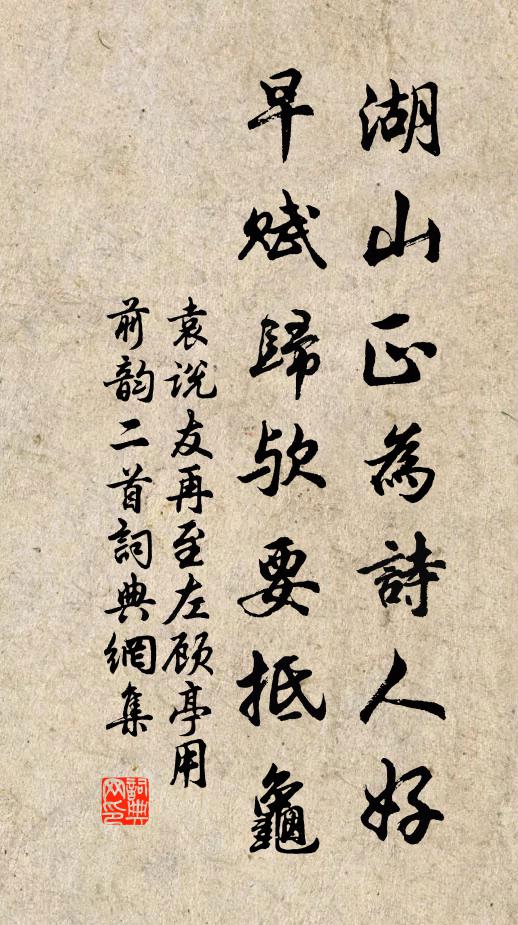 湖山正為詩人好
早賦歸欤要抵龜
袁説友再至左顧亭用
前韵二首詞典網集
詞典
网印